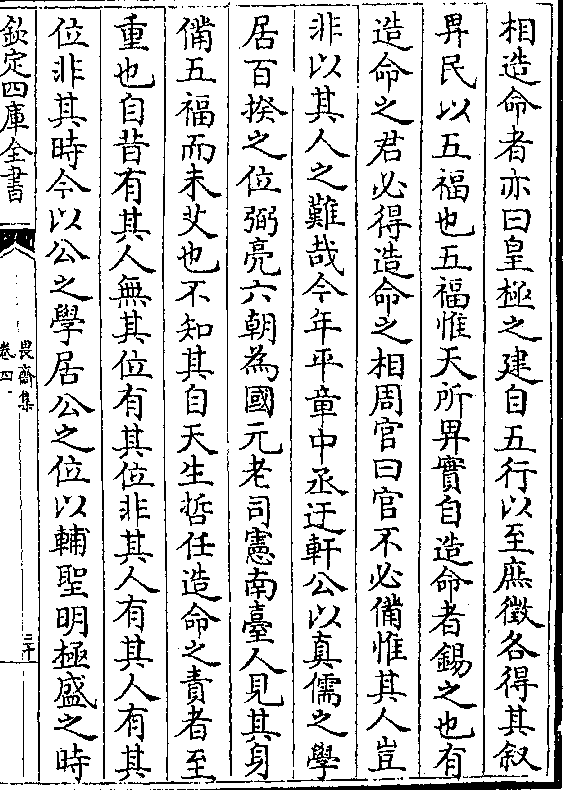 相造命者亦曰皇極之建自五行以至庶徵各得其叙
畀民以五福也五福惟天所畀實自造命者錫之也有
造命之君必得造命之相周官曰官不必備惟其人豈
非以其人之難哉今年平章中丞迂軒公以真儒之學
居百揆之位弼亮六朝為國元老司憲南臺人見其身
備五福而未艾也不知其自天生哲任造命之責者至
重也自昔有其人無其位有其位非其人有其人有其
位非其時今以公之學居公之位以輔聖明極盛之時
欽定四庫全書
畏齋集
卷四
三十